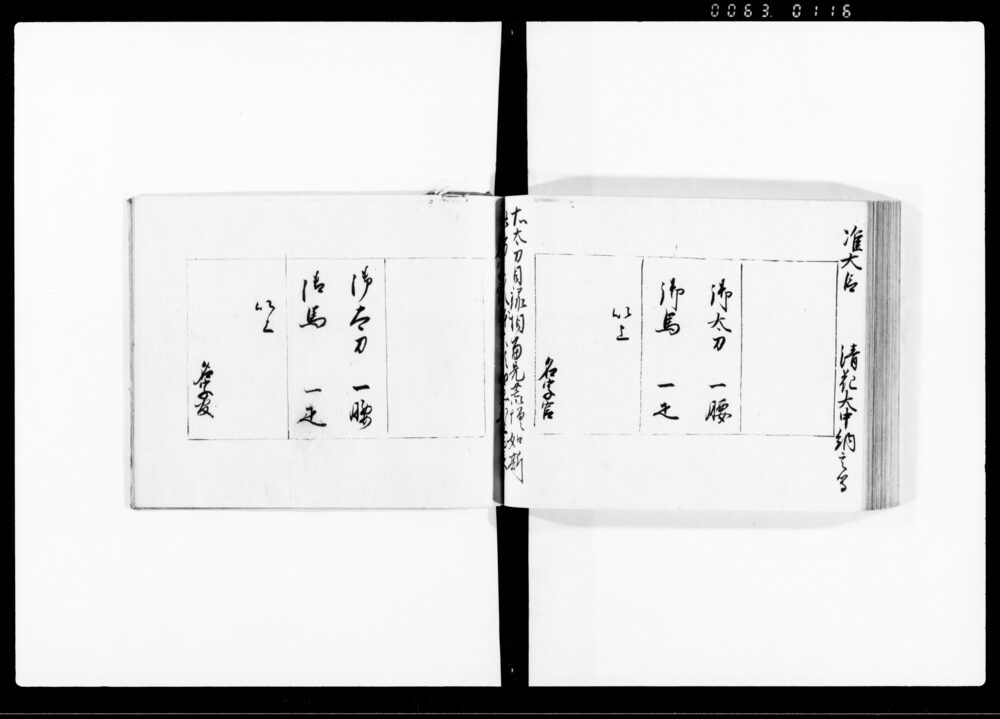 0063 0116
准大臣 清花大中納言写
御太刀 一腰
御馬 一疋
以上
名字官
太刀目録相留先 如斯
御太刀 一腰
御馬 一疋
以上
名字